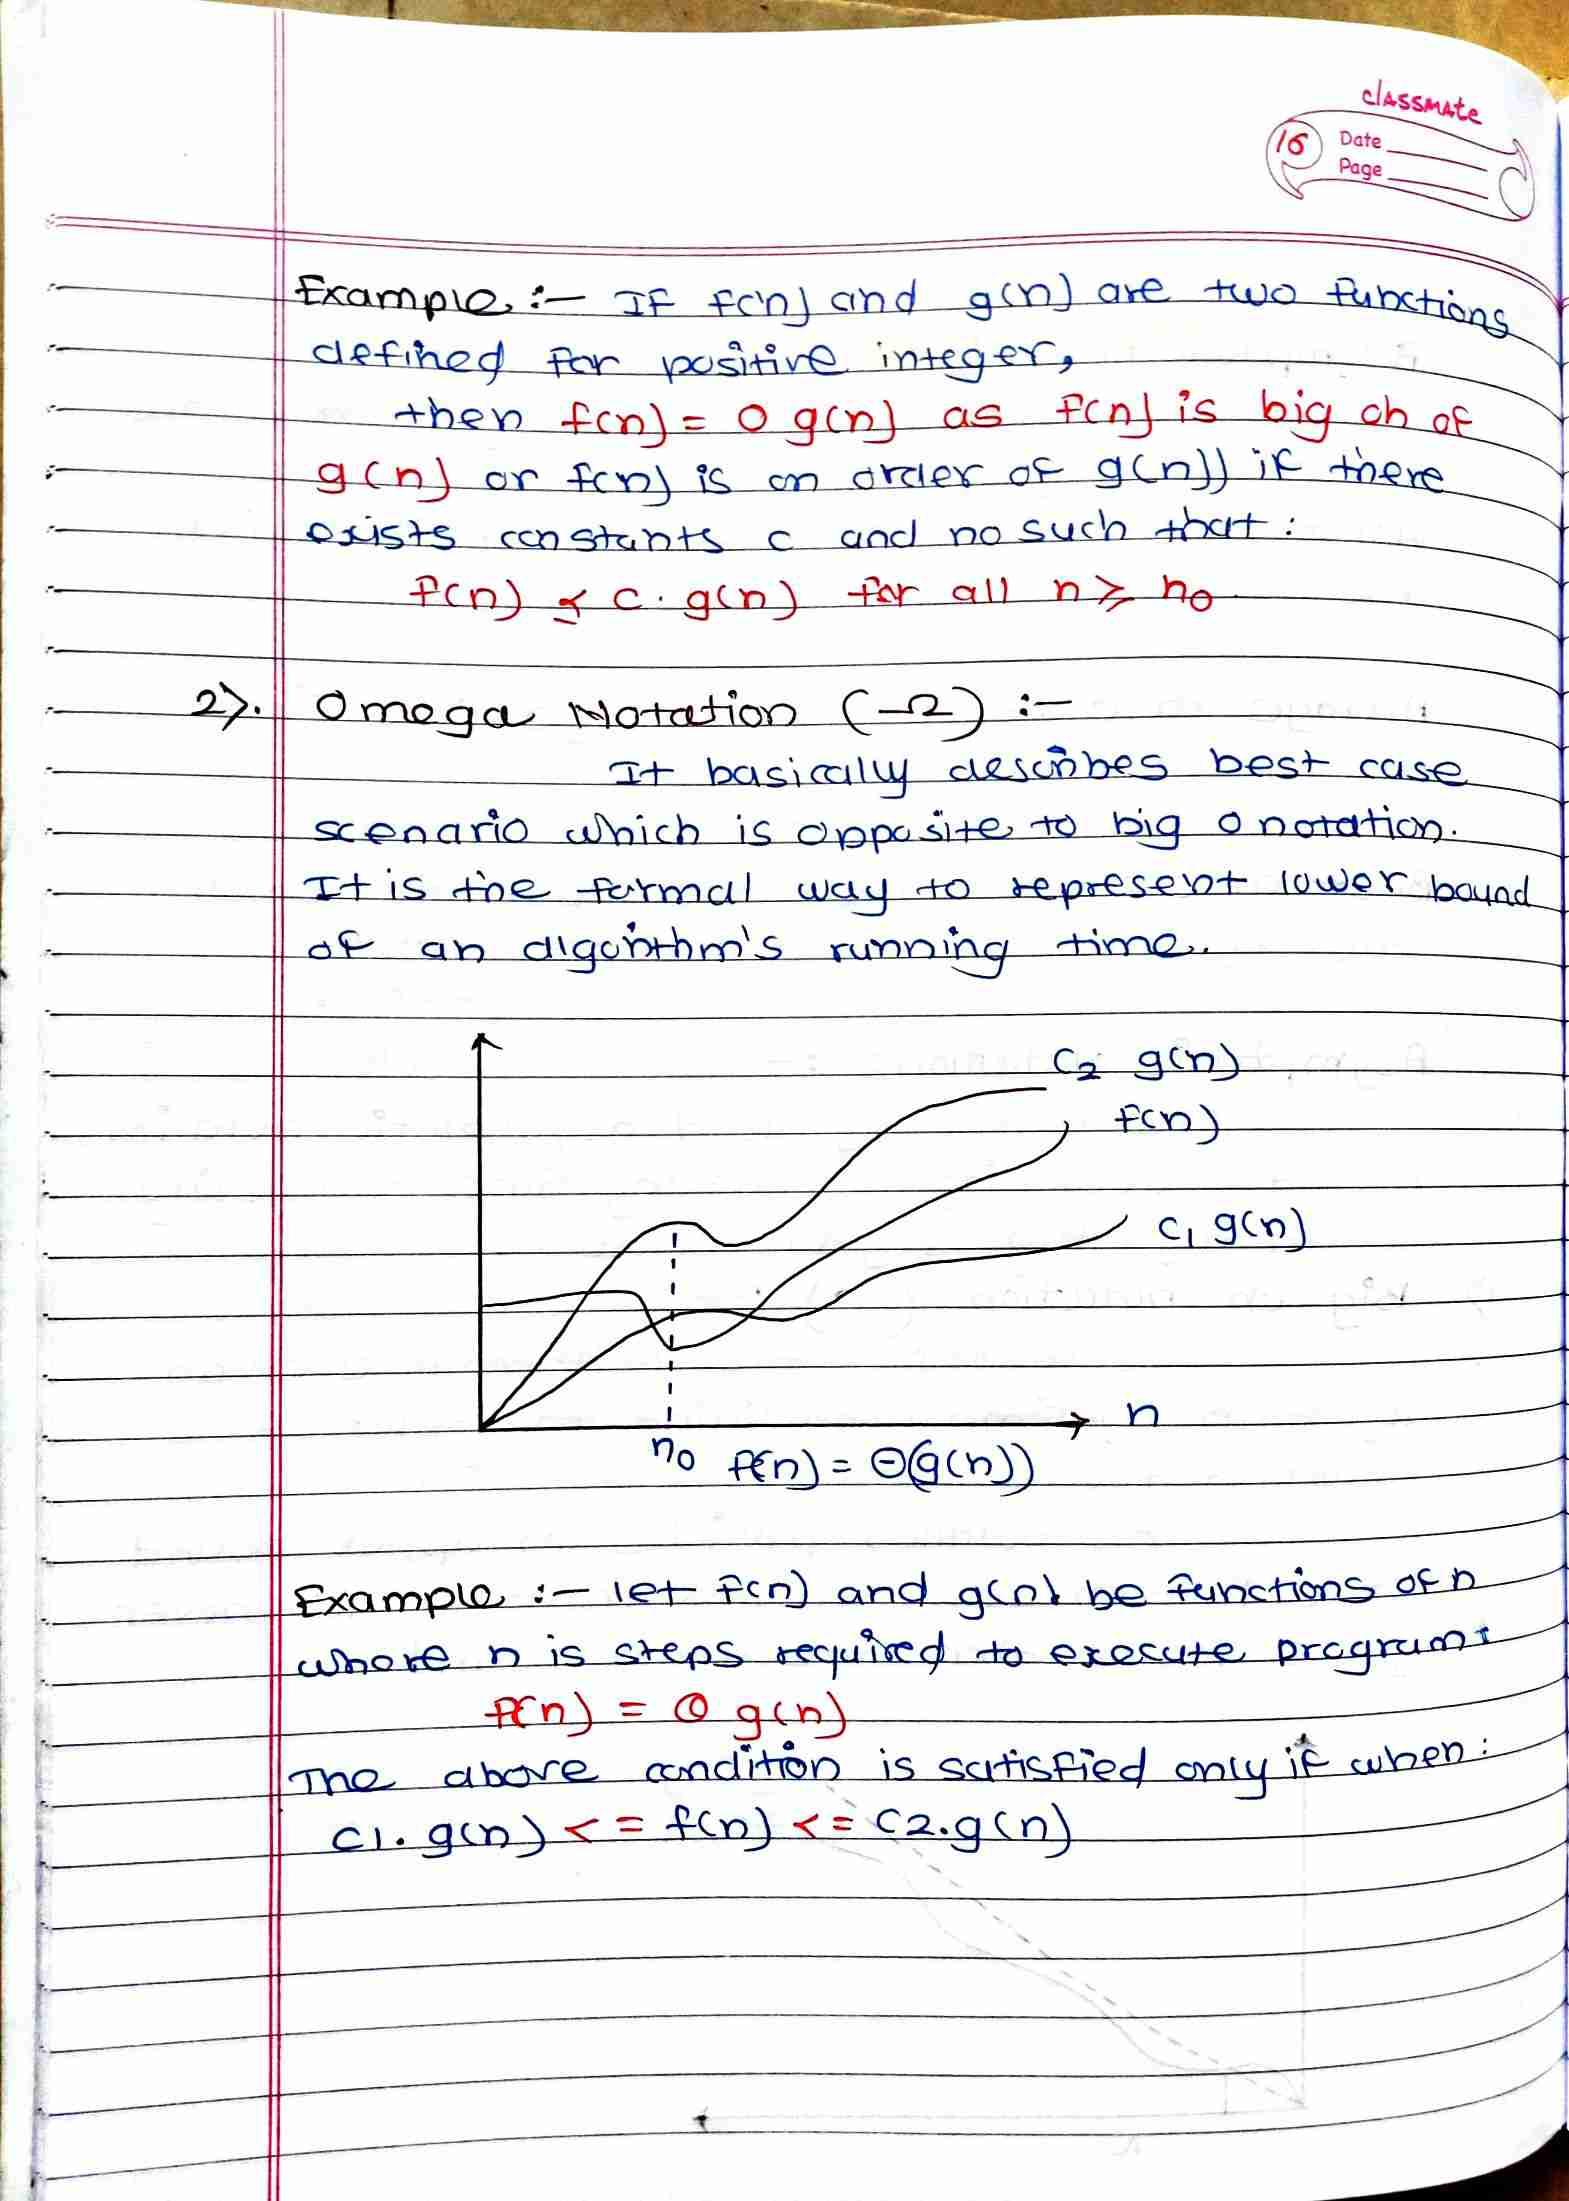 classmate
16 Date
Page
Example :- If f(n) and g(n) are two functions
defined for positive integer,
then f(n) = O g(n) as f(n) is big oh of
g(n) or f(n) is on order of g(n)) if there
exists constants c and no such that:
f(n) ≤ c. g(n) for all n ≥ n₀
2). Omega Notation (-Ω) :-
It basically describes best case
scenario which is opposite to big o notation.
It is the formal way to represent lower bound
of an algorithm's running time.
C₂ g(n)
f(n)
C₁ g(n)
n
n₀ f(n) = Θ(g(n))
Example :- let f(n) and g(n) be functions of n
where n is steps required to execute program:
f(n) = Θ g(n)
The above condition is satisfied only if when:
C1. g(n) <= f(n) <= C2.g(n)